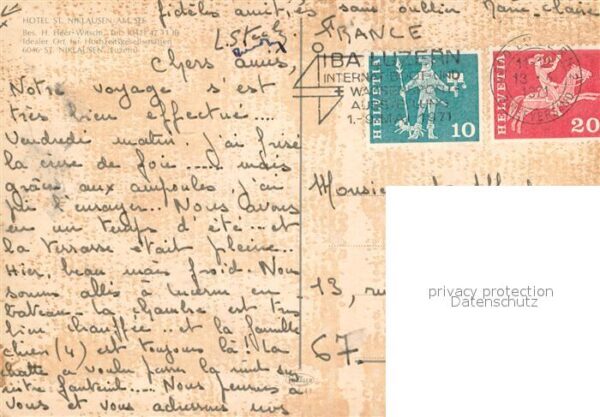 fidèles amitiés sans oublier Marie-Claire
HOTEL ST. NIKLAUSEN AM SEE
Bes. H. Heer-Witschi, Tel. (041) 47 11 18
Idealer Ort für Hochzeitsgesellschaften
6046 ST. NIKLAUSEN (Luzern)
FRANCE
IBA LUZERN
INTERN. BOOT- UND
1.-9. MAI 1971
HELVETIA
10
HELVETIA
20
Chers amis,
Notre voyage s'est
très bien effectué....
Vendredi matin, j'ai frisé
la crise de foie..... mais
grâce aux ampoules j'ai
pu l'enrayer... Nous avons
eu un temps d'été.. et
la terrasse était pleine..
Hier, beau mais froid. Nous
sommes allés à Lucerne en
bateau. La chambre est très
bien chauffée.. et la famille
chien (4) est toujours là! La
chatte a voulu passer la nuit sur
notre fauteuil.... Nous pensons à
vous et vous adressons nos
Monsieur
13, rue
67
privacy protection
Datenschutz